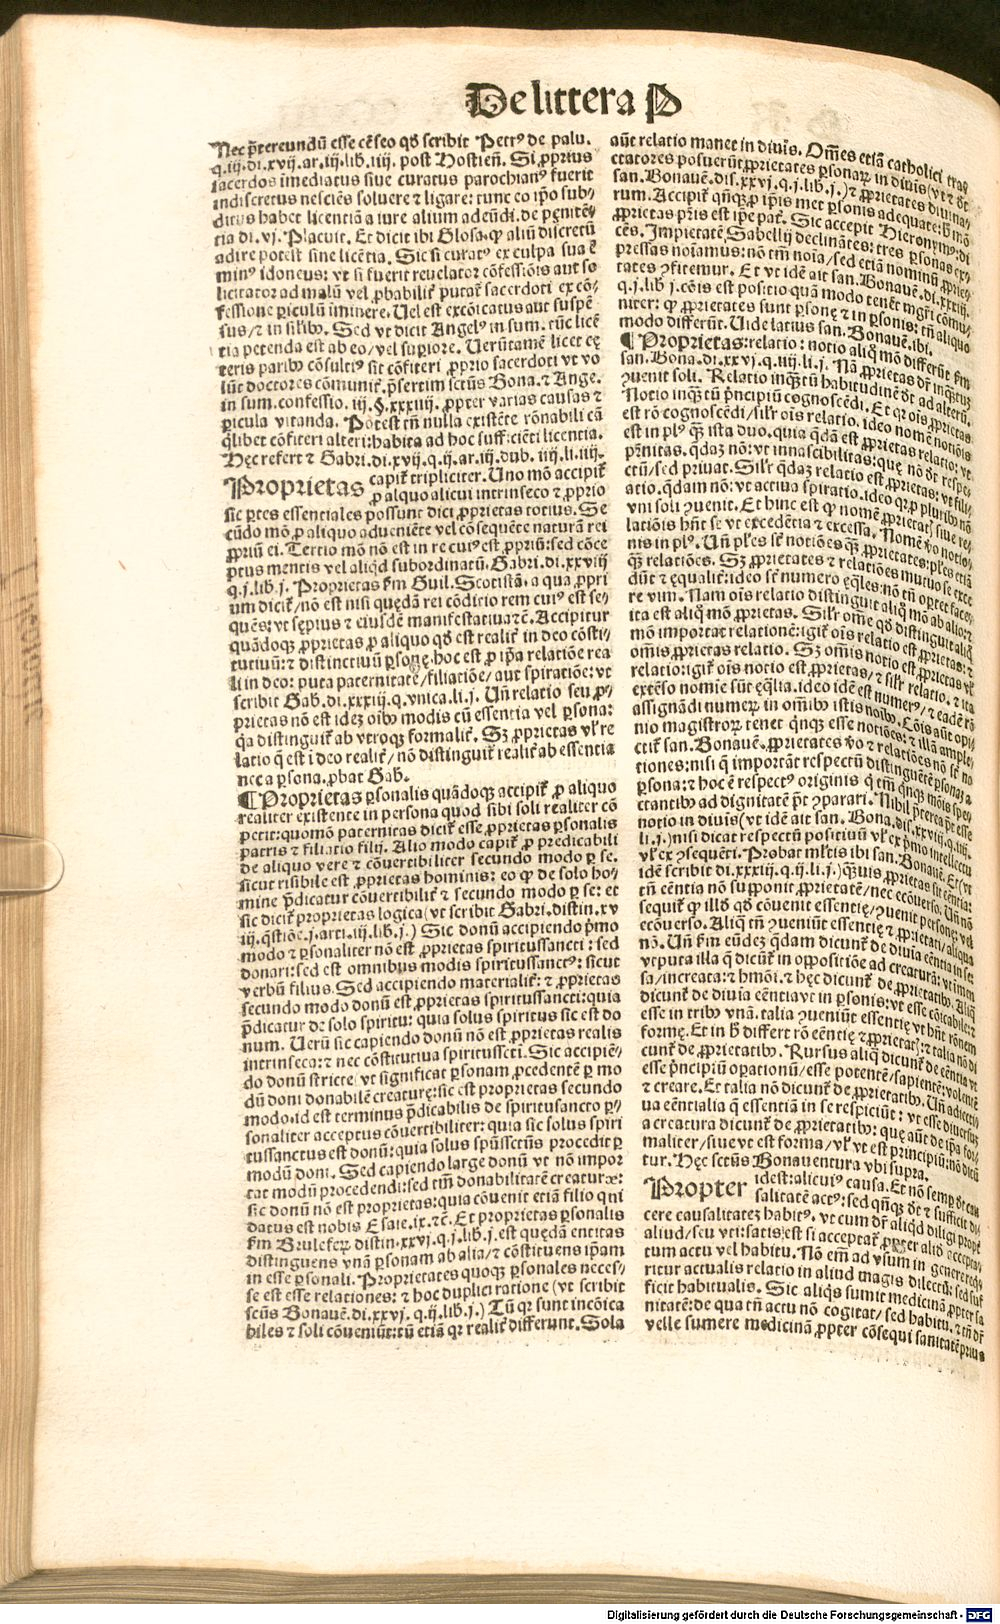 De littera P
Nec p̃tereundũ esse cẽseo qđ scribit Petrꝰ de palu.
q.iij.di.xvij.ar.iij.lib.iiij. post Hostieñ. Si ꝓprius
sacerdos imediatus siue curatus parochianꝰ fuerit
indiscretus nesciẽs soluere ⁊ ligare: tunc eo ip̃o sub⸗
ditus habet licentiã a iure alium adeũdi. de penitẽ⸗
tia di. vj. Placuit. Et dicit ibi Glosa. ꝙ aliũ discretũ
adire potest sine licẽtia. Sic si curatꝰ ex culpa sua ẽ
minꝰ idoneus: vt si fuerit reuelator cõfessiõis aut so
licitator ad malũ vel ꝓbabilit̃ putat̃ sacerdoti ex cõ⸗
fessione ꝑiculũ iminere. Uel est excõicatus aut suspẽ
sus/⁊ in silibꝰ. Sed vt dicit Angelꝰ in sum. tũc licẽ
tia petenda est ab eo/vel suꝑiore. Uerũtamẽ licet cę
teris paribꝰ cõsultiꝰ sit cõfiteri ꝓprio sacerdoti vt vo
lũt doctores cõmunit̃. p̃sertim sctũs Bona. ⁊ Ange.
in sum. confessio. iij. §. xxxiiij. ꝓpter varias causas ⁊
ꝑicula vitanda. Potest tñ nulla existẽte rõnabili cã
q̃libet cõfiteri alteri: habita ad hoc sufficiẽti licentia.
Hęc refert ⁊ Gabri. di. xvij. q. ij. ar. iij. dub. iiij. li. iiij.
Proprietas capit̃ tripliciter. Uno mõ accipit̃
ꝓ alquo alicui intrinseco ⁊ ꝓprio
sic ꝑtes essentiales possunt dici ꝓprietas totius. Se
cũdo mõ ꝓ aliquo adueniẽte vel cõsequẽte naturã rei
ꝓpriũ ei. Tertio mõ nõ est in re cuiꝰ est ꝓpriũ: sed cõce
ptus mentis vel aliqđ subordinatũ. Gabri. di. xxviij
q. j. lib. j. Proprietas scđm Guil. Scotistã. a qua ꝓpri
um dicit̃/nõ est nisi quędã rei cõditio rem cuiꝰ est se⸗
quẽs: vt sępius ⁊ eiusdẽ manifestatiua ⁊c̃. Accipitur
quãdoqꝫ ꝓprietas ꝓ aliquo qđ est realit̃ in deo cõsti⸗
tutiuũ: ⁊ distinctiuũ ꝑsonę. hoc est ꝓ ip̃a relatiõe rea
li in deo: puta paternitate/filiatiõe/aut spiratiõe: vt
scribit Gab. di. xxxiij. q. vnica. li. j. Uñ relatio seu ꝓ⸗
prietas nõ est idez oibꝰ modis cũ essentia vel ꝑsona:
q̃a distinguit̃ ab vtroqꝫ formalit̃. Sꝫ ꝓprietas vl̃ re
latio q̃ est ĩ deo realit̃/nõ distinguit̃ realit̃ ab essentia
nec a ꝑsona. ꝓbat Gab.
¶ Proprietas ꝑsonalis quãdoqꝫ accipit̃ ꝓ aliquo
realiter existente in persona quod sibi soli realiter cõ
petit: quomõ paternitas dicit̃ esse ꝓprietas ꝑsonalis
patris ⁊ filiatio filij. Alio modo capit̃ ꝓ predicabili
de aliquo vere ⁊ cõuertibiliter secundo modo ꝑ se.
sicut risibile est ꝓprietas hominis: eo ꝙ de solo ho⸗
mine p̃dicatur cõuertibilit̃ ⁊ secundo modo ꝑ se: et
sic dicit̃ proprietas logica (vt scribit Gabri. distin. xv
iij. q̃stiõe. j. arti. iij. lib. j.) Sic donũ accipiendo p̃mo
modo ⁊ ꝑsonaliter nõ est ꝓprietas spiritussancti: sed
donari: sed est omnibus modis spiritussanctꝰ: sicut
verbũ filius. Sed accipiendo materialit̃: ⁊ ꝓprietas
secundo modo donũ est ꝓprietas spiritussancti: quia
p̃dicatur de solo spiritu: quia solus spiritus sic est do
num. Uerũ sic capiendo donũ nõ est ꝓprietas realis
intrinseca: ⁊ nec cõstitutiua spiritusscti. Sic accipiẽ⸗
do donũ stricte/vt significat ꝑsonam ꝓcedentẽ ꝑ mo
dũ doni donabilẽ creaturę: sic est proprietas secundo
modo. id est terminus p̃dicabilis de spiritusancto ꝑ⸗
sonaliter acceptus cõuertibiliter: quia sic solus spiri
tussanctus est donũ: quia solus spũssctũs procedit ꝑ
modũ doni. Sed capiendo large donũ vt nõ impor
tat modũ procedendi: sed tm̃ donabilitatẽ creaturæ:
sic donũ nõ est proprietas: quia cõuenit etiã filio q̃ ni
datus est nobis Esaie. ix. ⁊c̃. Et proprietas ꝑsonalis
scđm Bruleferꝝ distin. xxvj. q. j. lib. j. est quędã entitas
distinguens vnã ꝑsonam ab alia/⁊ cõstituens ip̃am
in esse ꝑsonali. Proprietates quoqꝫ ꝑsonales neces⸗
se est esse relationes: ⁊ hoc duplici ratione (vt scribit
sctũs Bonauẽ. di. xxvj. q. ij. lib. j.) Tũ qꝛ sunt incõica
biles ⁊ soli cõueniũt: tũ etiã qꝛ realit̃ differunt. Sola
aũt relatio manet in diuis. Om̃es etiã catholici trac
ctatores posuerũt ꝓprietates ꝑsonaꝝ in diuis (vt ⁊ dt̃
san. Bonauẽ. dis. xxvj. q. j. lib. j.) ⁊ ꝓprietates diuina⸗
rum. Accipit̃ qñqꝫ ꝓ ip̃is met ꝑsonis adequate: h̃ mõ
ꝓprietas pr̃is est ip̃e pat̃. Sic accepit Hieronymꝰ: di
cẽs. Impietatẽ Sabellij declinãtes: tres ꝑsonas ex⸗
pressas noĩamus: nõ tm̃ noĩa/sed etiã nominũ ꝓprie⸗
tates ꝯfitemur. Et vt idẽ ait san. Bonauẽ. di. xxxiij.
q. j. lib. j. cõis est positio quã modo tenẽt mgr̃i cõmu⸗
niter: ꝙ ꝓprietates sunt ꝑsonę ⁊ in ꝑsonis: tñ aliquo
modo differũt. Uide latius san. Bonauẽ. ibi.
¶ Proprietas: relatio: notio aliq̃ mõ differũt scđm
san. Bona. di. xxvj. q. iiij. li. j. Nã ꝓprietas dr̃ inq̃ꝫtuz
ꝯuenit soli. Relatio inq̃ꝫtũ habitudinẽ dt̃ ad alterũ.
Notio inq̃ꝫtũ p̃ncipiũ cognoscẽdi. Et qꝛ ois ꝓprietas
est rõ cognoscẽdi/silr̃ ois relatio. ideo nomẽ notiõis
est in plꝰ qꝫ ista duo. quia q̃dã est ꝓprietas relatio: vt
pr̃nitas. q̃daz nõ: vt innascibilitas: quę nõ dt̃ respe⸗
ctũ/sed priuat. Silr̃ q̃daz relatio est ꝓprietas: vt fili⸗
atio. q̃dam nõ: vt actiua spiratio. ideo qꝛ ꝓ pluribꝰ nõ
vni soli ꝯuenit. Et hinc est ꝙ nomẽ ꝓprietat̃ siue re⸗
lationis hñt se vt excedẽtia ⁊ excessa. Nomẽ ṽo notio⸗
nis in plꝰ. Uñ pl̃es st̃ notiões qꝫ ꝓprietates: pl̃es etiã
qꝫ relatiões. Sꝫ ꝓprietates ⁊ relatiões mutuo se exce
dũt ⁊ ęqualit̃: ideo st̃ numero ęq̃les: nõ tñ oꝑtet face⸗
re vim. Nam ois relatio distinguit aliq̃ mõ ab alio: ⁊
ita est aliq̃ mõ ꝓprietas. Silr̃ om̃e qđ distinguit aliq̃
mõ importat relationẽ: igit̃ ois relatio est ꝓprietas: ⁊
om̃is ꝓprietas relatio. Sꝫ om̃is notio est ꝓprietas vl̃
relatio: igit̃ ois notio est ꝓprietas/⁊ silr̃ relatio. ⁊ ita
extẽso nomie sũt ęq̃lia. ideo idẽ est numerꝰ/⁊ eadẽ rõ
assignãdi numeꝝ in om̃ibꝰ istis noibꝰ. Cõis aũt opi⸗
nio magistroꝝ tenet q̃nqꝫ esse notiões: ⁊ illã ample⸗
ctit̃ san. Bonauẽ. ꝓprietates ṽo ⁊ relatiões nõ st̃ no
tiones: nisi q̃ importãt respectũ distinguẽtẽ ꝑsonaz a
ꝑsona: ⁊ hoc ẽ respectꝰ originis q̃ tm̃ q̃nqꝫ mõis spe⸗
ctantibꝰ ad dignitatẽ p̃t ꝯparari. Nihil p̃terea pt̃ esse
notio in diuis (vt idẽ ait san. Bona. dis. xxviij. q. iiij.
li. j.) nisi dicat respectũ positiuũ vl̃ ex p̃mo intellectu
vl̃ ex ꝯsequẽti. Probat ml̃tis ibi san. Bonauẽ. Et (vt
idẽ scribit di. xxxiij. q. ij. li. j.) q̃uis ꝓprietas sit eẽntia:
tñ eẽntia nõ supponit ꝓprietatẽ/nec ecõuerso. Uñ nõ
sequit̃ ꝙ illđ qđ cõuenit essentię/ꝯuenit ꝑsonę: vel
ecõuerso. Aliq̃ tñ ꝯueniũt essentię ⁊ ꝓprietati/aliqua
nõ. Uñ scđm eũdez q̃dam dicunt̃ de diuia eẽntia in se:
vtputa illa q̃ dicũt̃ in oppositiõe ad creaturã: vt imen
sa/increata: ⁊ hmõi. ⁊ hęc dicunt̃ de ꝓprietatibꝰ. Aliq̃
dicunt̃ de diuia eẽntia vt in ꝑsonis: vt esse cõicabile: ⁊
esse in tribꝰ vnã. talia ꝯueniũt essentię vt hñt rõnem
formę. Et in h̃ differt rõ eẽntię ⁊ ꝓprietat̃: ⁊ talia nõ di
cunt̃ de ꝓprietatibꝰ. Rursus aliq̃ dicunt̃ de eẽntia vt
esse p̃ncipiũ oꝑationũ/esse potentẽ/sapientẽ: volentẽ
⁊ creare. Et talia nõ dicunt̃ de ꝓprietatibꝰ. Uñ adiecti⸗
ua eẽntialia q̃ essentiã in se respiciũt: vt esse diuersuz
a creatura dicunt̃ de ꝓprietatibꝰ: que aũt de ip̃a for⸗
maliter/siue vt est forma/vl̃ vt est principiũ: nõ dicũ
tur. Hęc sctũs Bonauentura vbi supra.
Propter idest: alicuiꝰ causa. Et nõ semꝑ dt̃ cau
salitatẽ actꝰ: sed qñqꝫ dt̃ ⁊ sufficit di
cere causalitatez habitꝰ. vt cum dr̃ aliqđ diligi propt̃
aliud/seu vti: satis est si acceptat̃ ꝓpter aliđ accepta⸗
tum actu vel habitu. Nõ em̃ ad vsum in genere req̃
ritur actualis relatio in aliud magis dilectũ: sed suf
ficit habitualis. Sic aliq̃s sumit medicinã ꝓpter sa
nitatẽ: de qua tñ actu nõ cogitat/sed habitu. ⁊ tñ dr̃
velle sumere medicinã ꝓpter cõsequi sanitatẽ prius
Digitalisierung gefördert durch die Deutsche Forschungsgemeinschaft - DFG